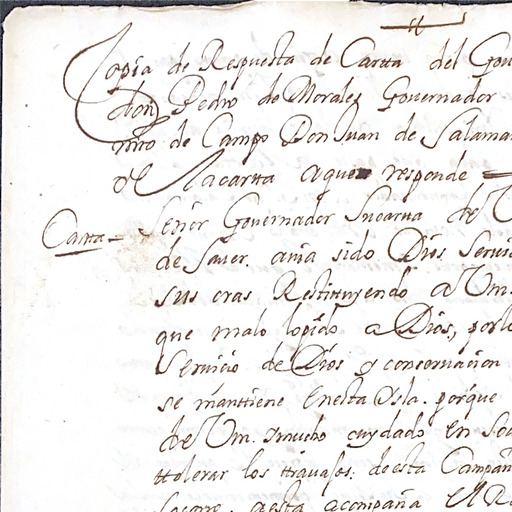 Copia de Respuesta de Cartta del Gou
don Pedro de Morales Governador
mro de Campo Don Juan de Salama
de la cartta aque responde
Cartta = Señor Governador Sucarta de V
de Sauer. auia sido Dios Servi
sus oras Restittuyendo a Vm.
que malo lo pido a Dios, porlo
Servicio de Dios y conseruacion
se manttiene Enesta Ysla. porque
de Vm. Ymucho cuydado en
ttolerar los ttrauajos. deesta Campañ
Socorro. aesta acompaña El R